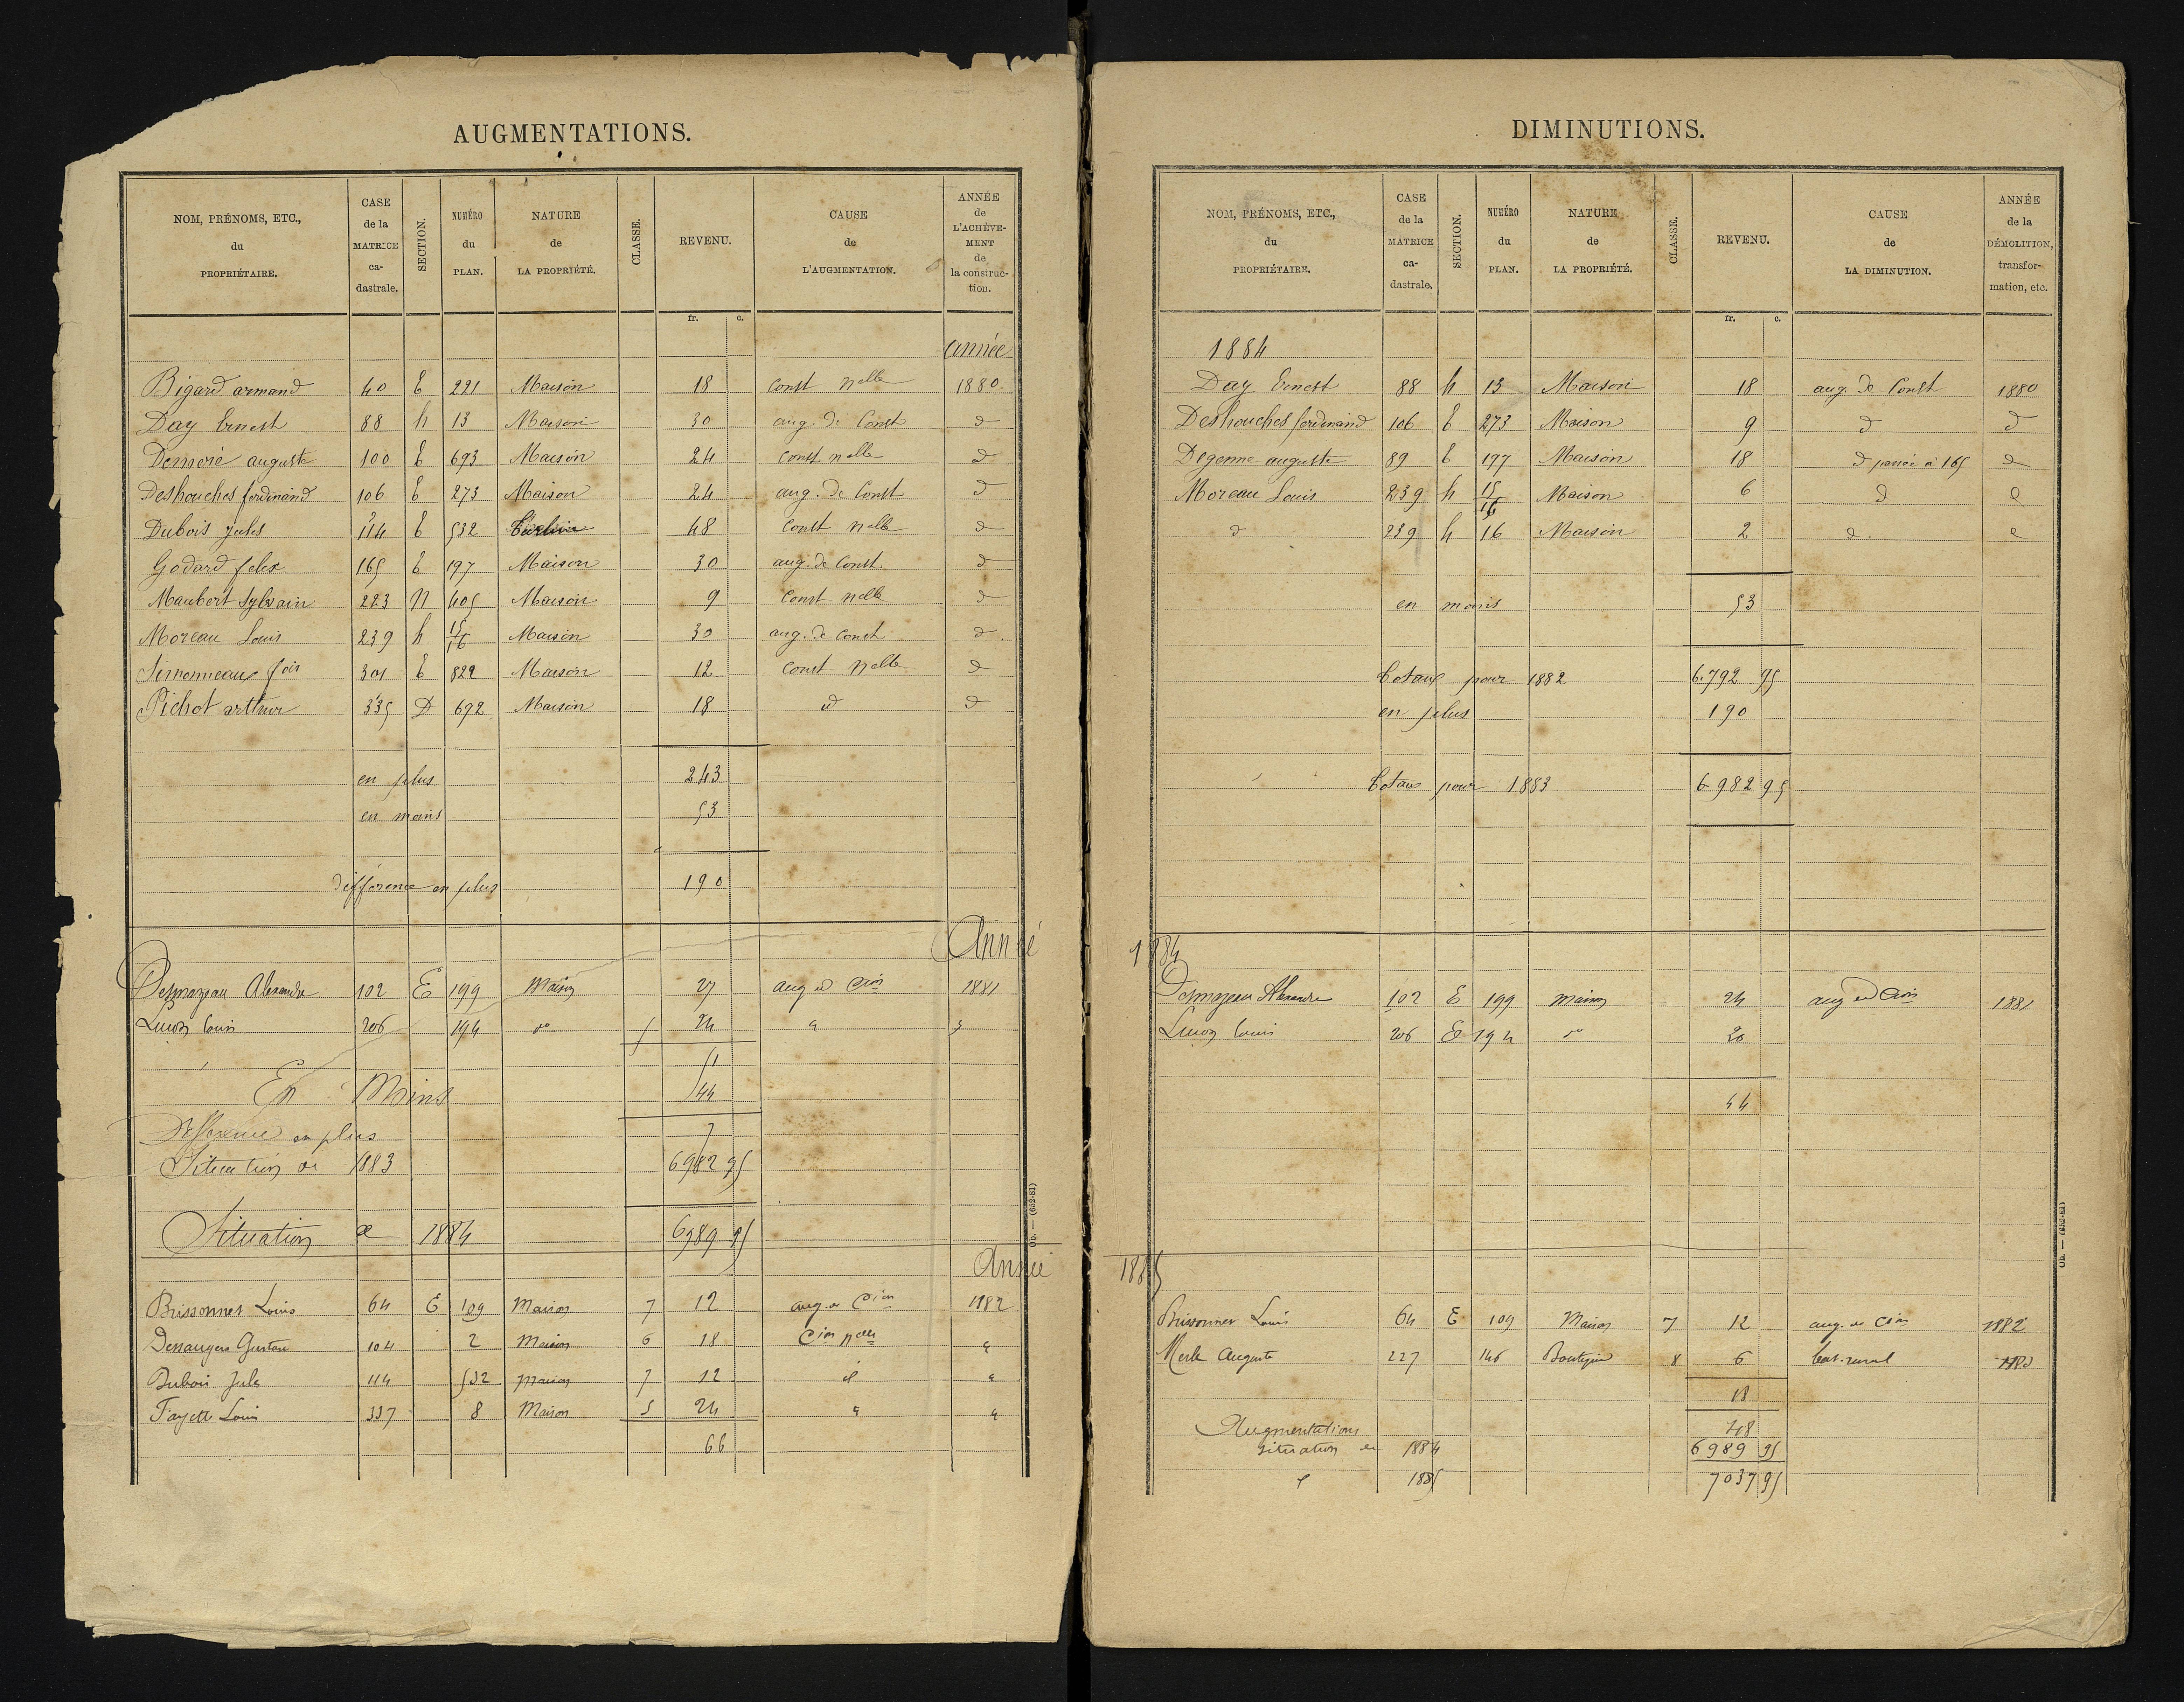 AUGMENTATIONS.
NOM, PRÉNOMS, ETC., du PROPRIÉTAIRE. CASE de la MATRICE ca-dastrale. SECTION. NUMÉRO du PLAN. NATURE de LA PROPRIÉTÉ. CLASSE. REVENU. CAUSE de L'AUGMENTATION. ANNÉE de L'ACHÈVE-MENT de la construc-tion.
fr. c.
année
Bigard armand 40 E 221 Maison 18 Const nelle 1880
Day Ernest 88 h 13 Maison 30 aug. de Const d
auguste 100 E 693 Maison 24 Const nelle d
Deshouches ferdinand 106 E 273 Maison 24 aug. de Const d
Dubois Jules 114 E 532 48 Const nelle d
Godard felix 165 E 197 Maison 30 aug. de Const d
Maubert Sylvain 223 n 405 Maison 9 Const nelle d
Moreau Louis 239 h 15/16 Maison 30 aug. de Const d
301 E 822 Maison 12 Const nelle d
Pichot arthur 335 D 692 Maison 18 d d
en plus 243
en moins 53
différence en plus 190
Année
Desmazeau Alexandre 102 E 199 Maison 27 aug de Cion 1881
Louis 206 194 do 24 "
51
En Moins 44
Différence en plus 7
Situation de 1883 6982 95
Situation de 1884 6989 95
Année
Brissonnet Louis 64 E 109 Maison 7 12 aug. de Cion 1882
Desaugers Gustave 104 2 Maison 6 18 Cion nelle "
Dubois Jules 114 532 Maison 7 12 d "
Fayette Louis 337 8 Maison 5 24 " "
66
Ob. — (632-81)
DIMINUTIONS.
NOM, PRÉNOMS, ETC., du PROPRIÉTAIRE. CASE de la MATRICE ca-dastrale. SECTION. NUMÉRO du PLAN. NATURE de LA PROPRIÉTÉ. CLASSE. REVENU. CAUSE de LA DIMINUTION. ANNÉE de la DÉMOLITION, transfor-mation, etc.
fr. c.
1884
Day Ernest 88 h 13 Maison 18 aug. de Const 1880
Deshouches ferdinand 106 E 273 Maison 9 d d
Degenne auguste 89 E 197 Maison 18 d passée à 165 d
Moreau Louis 239 h 15/16 Maison 6 d d
d 239 h 16 Maison 2 d d
en moins 53
totaux pour 1882 6.792 95
en plus 190
totaux pour 1883 6982 95
1884
Desmazeau Alexandre 102 E 199 maison 24 aug de Cion 1881
Louis 206 E 194 do 20
44
1885
Brissonnet Louis 64 E 109 Maison 7 12 aug. de Cion 1882
Merle Auguste 227 146 Boutique 8 6 bat. rural
18
Augmentations 48
situation de 1884 6989 95
d 1885 7037 95
Ob. — (632-81)